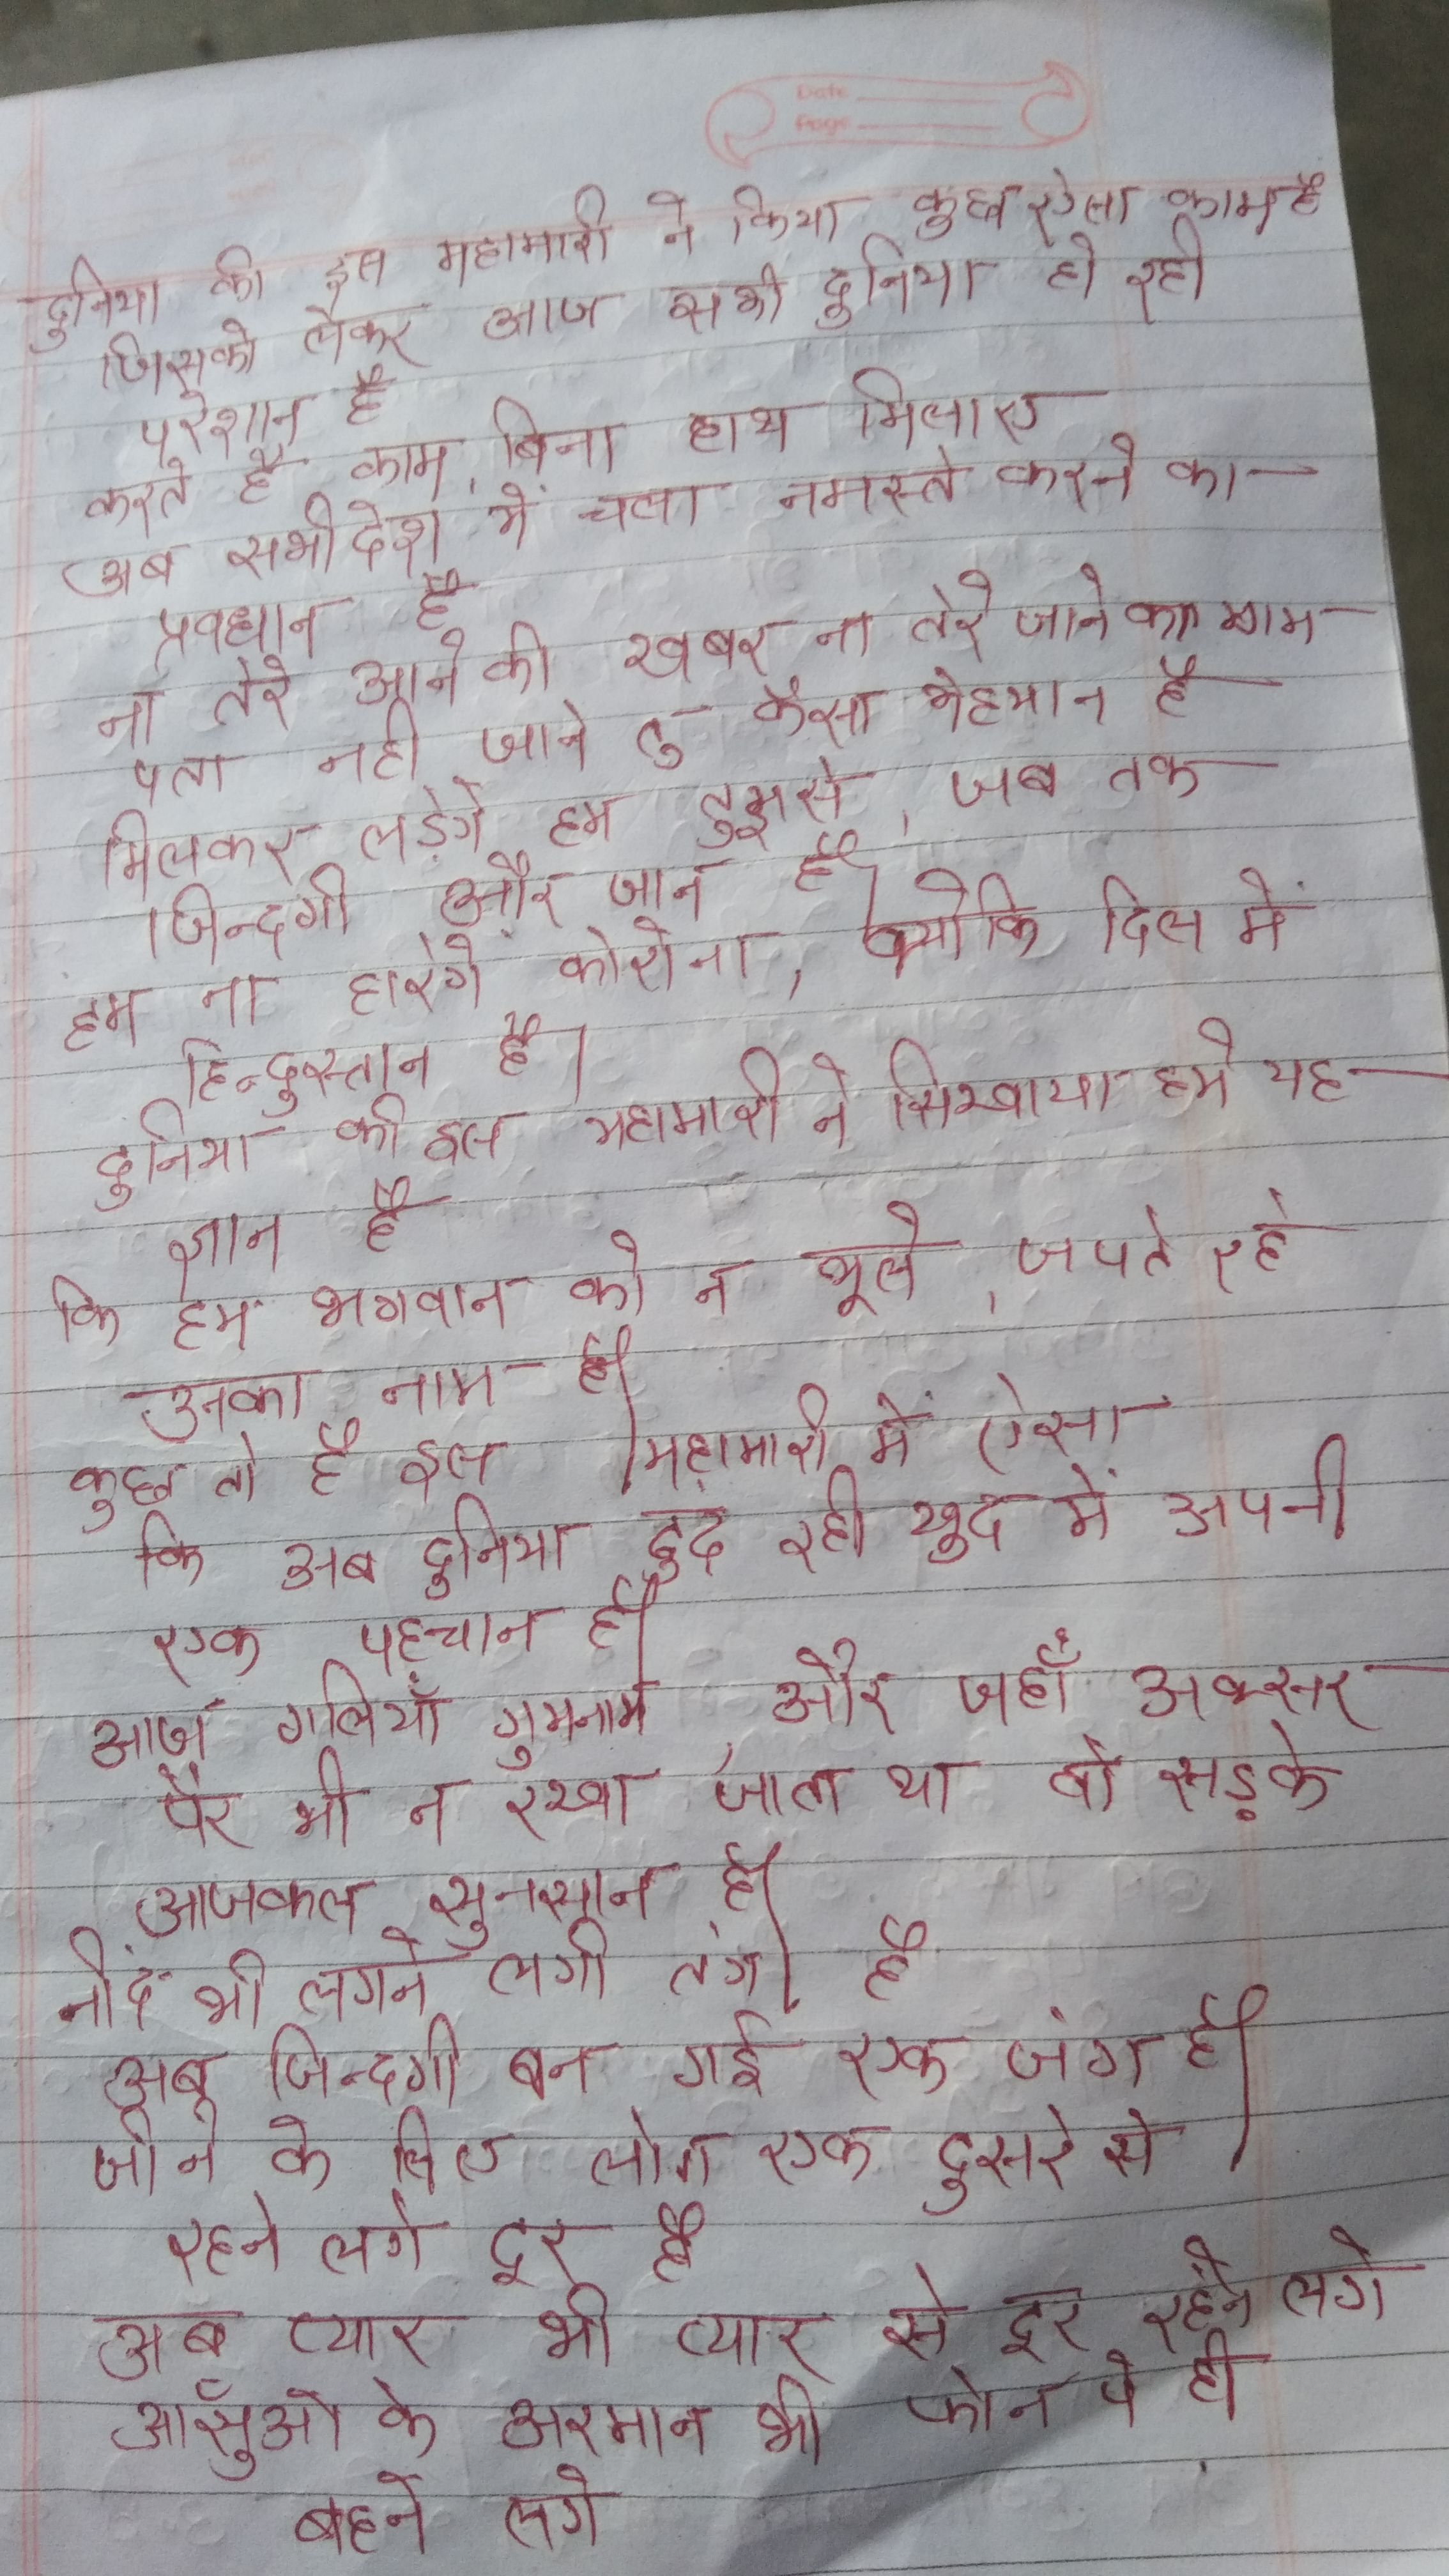 Date
Page
दुनिया की इस महामारी ने किया कुछ ऐसा काम है
जिसको लेकर आज सभी दुनिया हो रही
परेशान है
करते है काम, बिना हाथ मिलाए
अब सभी देश में चला नमस्ते करने का
प्रवधान है
ना तेरे आने की खबर ना तेरे जाने का
पता नही जाने तु कैसा मेहमान है
मिलकर लड़ेगे हम तुझसे, जब तक
जिन्दगी और जान है।
हम ना हारेगे कोरोना, क्योकि दिल में
हिन्दुस्तान है।
दुनिया की इस महामारी ने सिखाया हमे यह
ज्ञान है
कि हम भगवान को न भूले, जपते रहे
उनका नाम है।
कुछ तो है इस महामारी में ऐसा
कि अब दुनिया ढुढ रही खुद में अपनी
एक पहचान है।
आज गलियाँ गुमनाम और जहाँ अक्सर
पैर भी न रखा जाता था वो सड़के
आजकल सुनसान है।
नींद भी लगने लगी तंग है
अब जिन्दगी बन गई एक जंग है।
जीने के लिए लोग एक दुसरे से
रहने लगे दूर है
अब प्यार भी प्यार से दूर रहने लगे
आसुँओ के अरमान भी फोन पे ही
बहने लगे